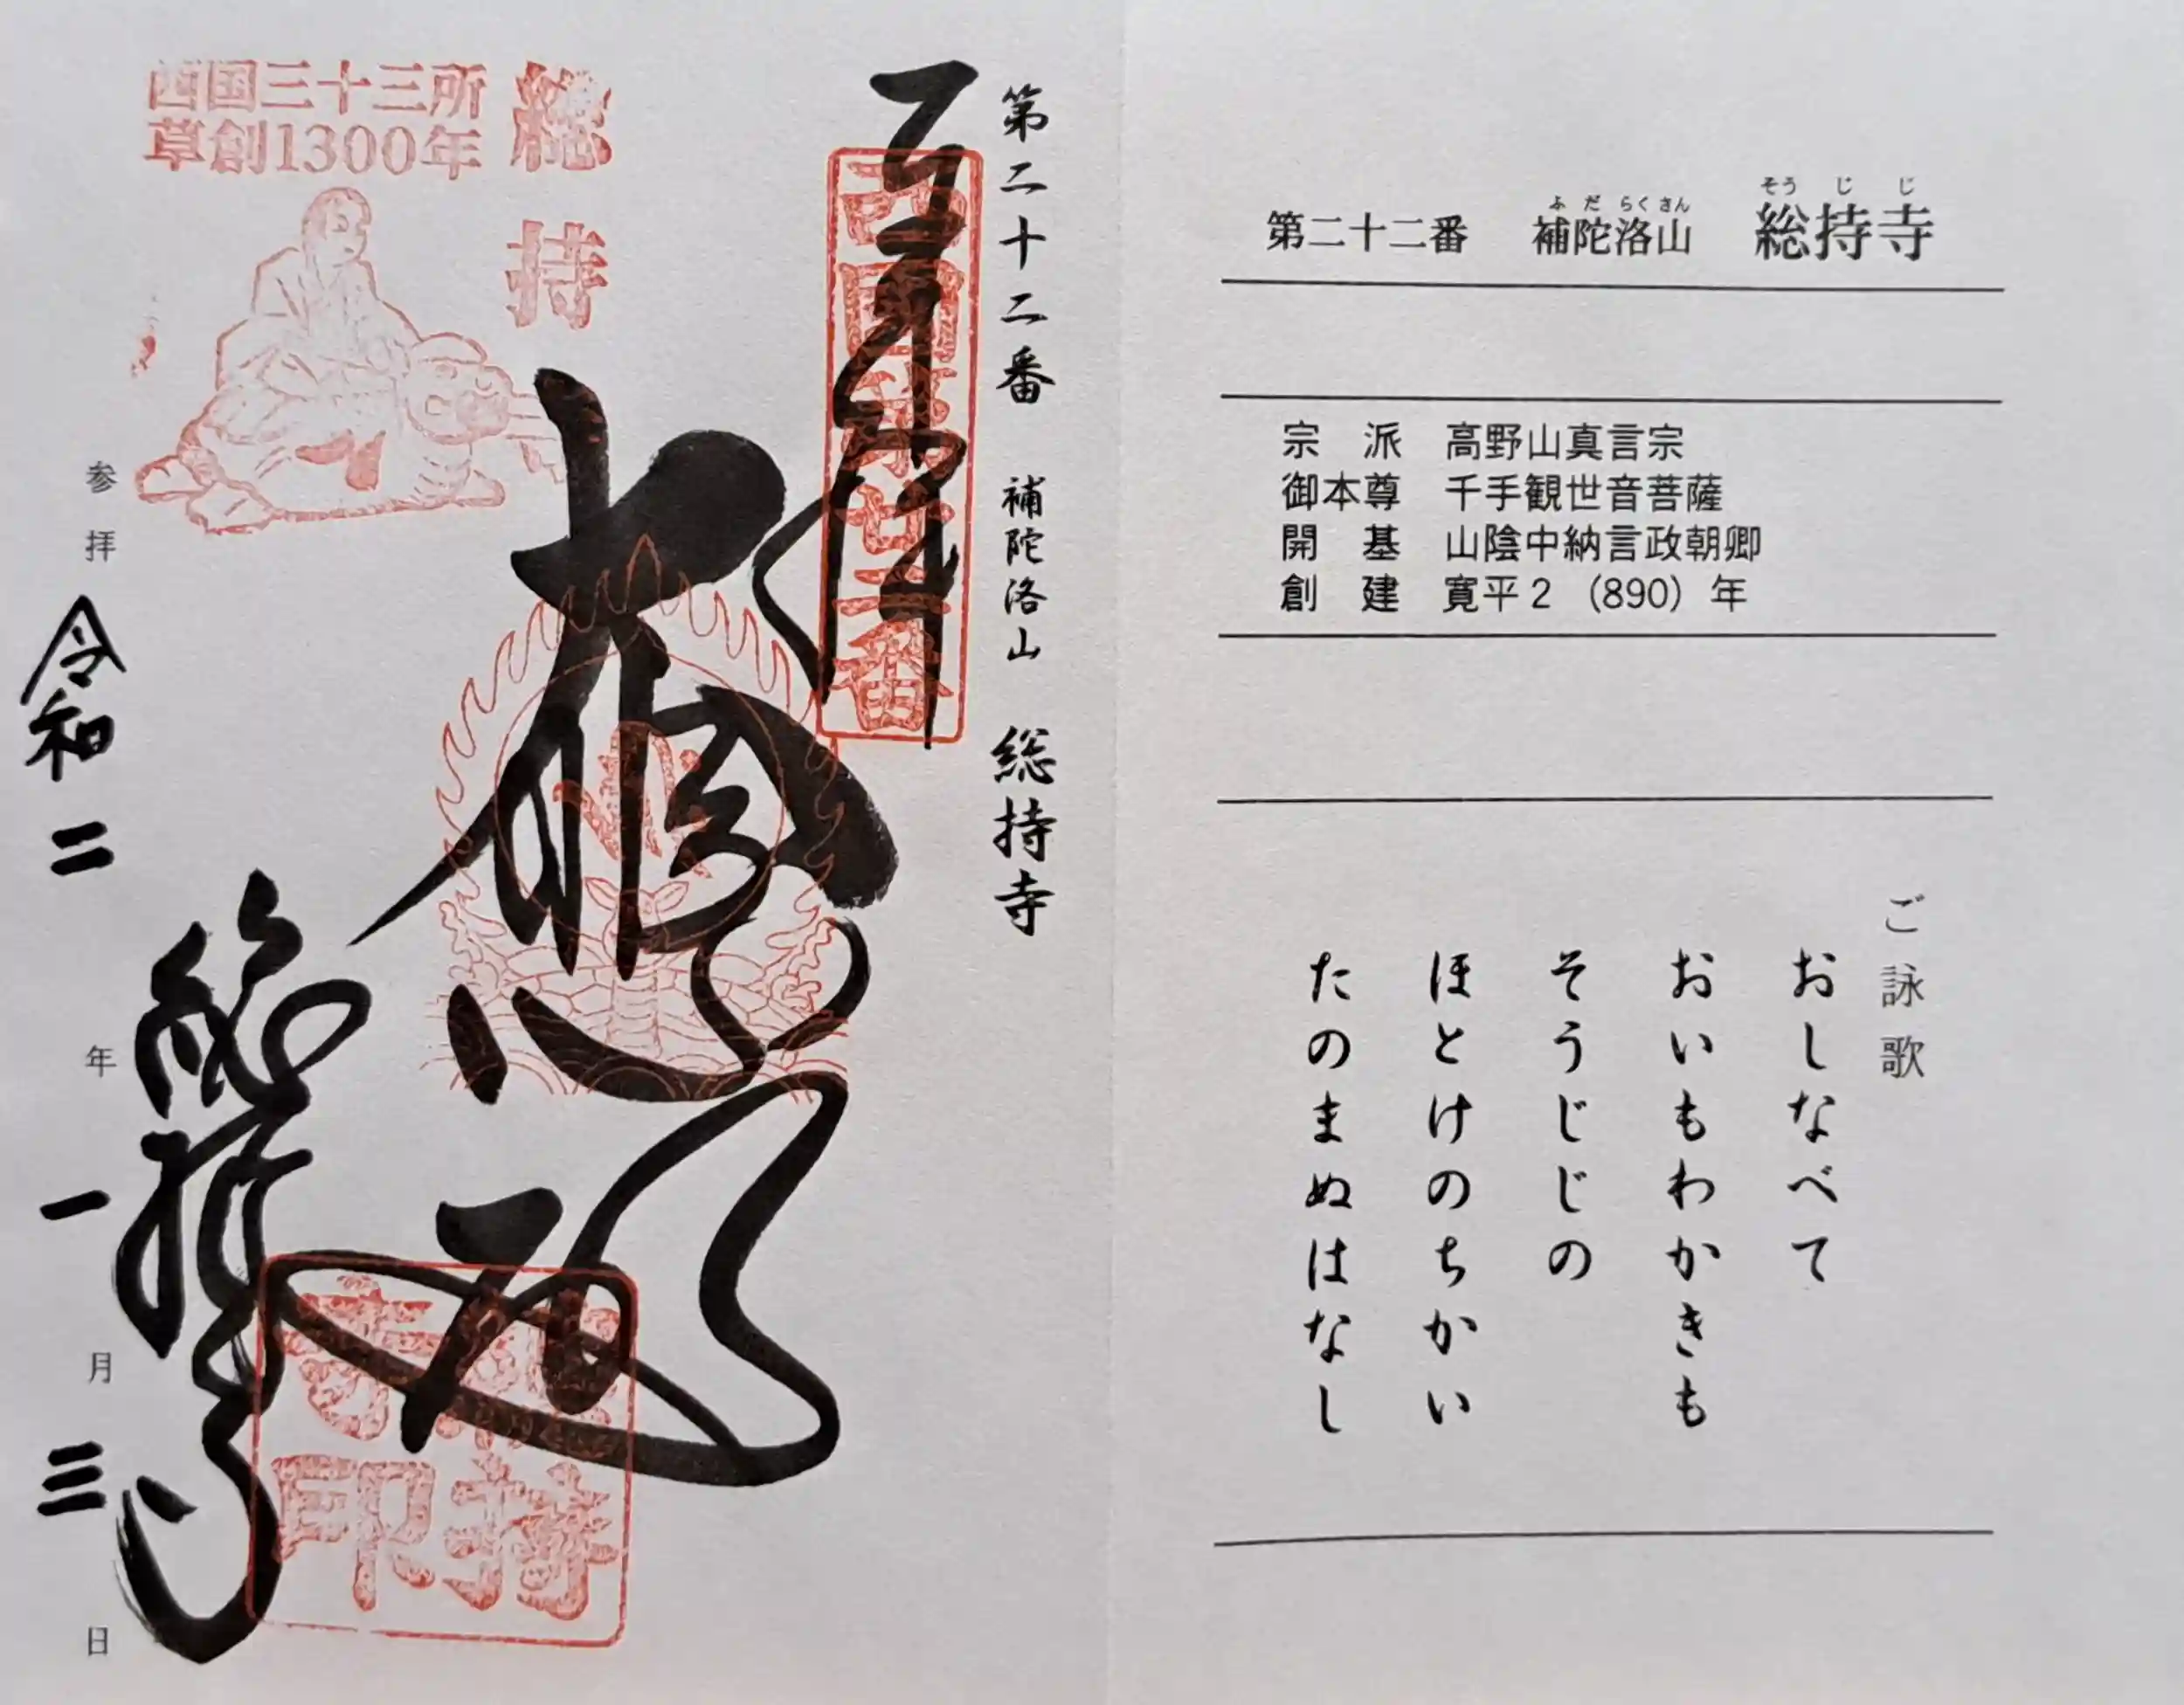 第二十二番 補陀洛山 総持寺
ふだらくさん そうじじ
宗 派 高野山真言宗
御本尊 千手観世音菩薩
開 基 山陰中納言政朝卿
創 建 寛平2 (890) 年
ご詠歌
おしなべて
おいもわかきも
そうじじの
ほとけのちかい
たのまぬはなし
第二十二番 補陀洛山 総持寺
奉拝
西国第廿二番
大悲殿
総持
西国三十三所
草創1300年
総持寺
総持寺印
参拝 令和二年一月三日